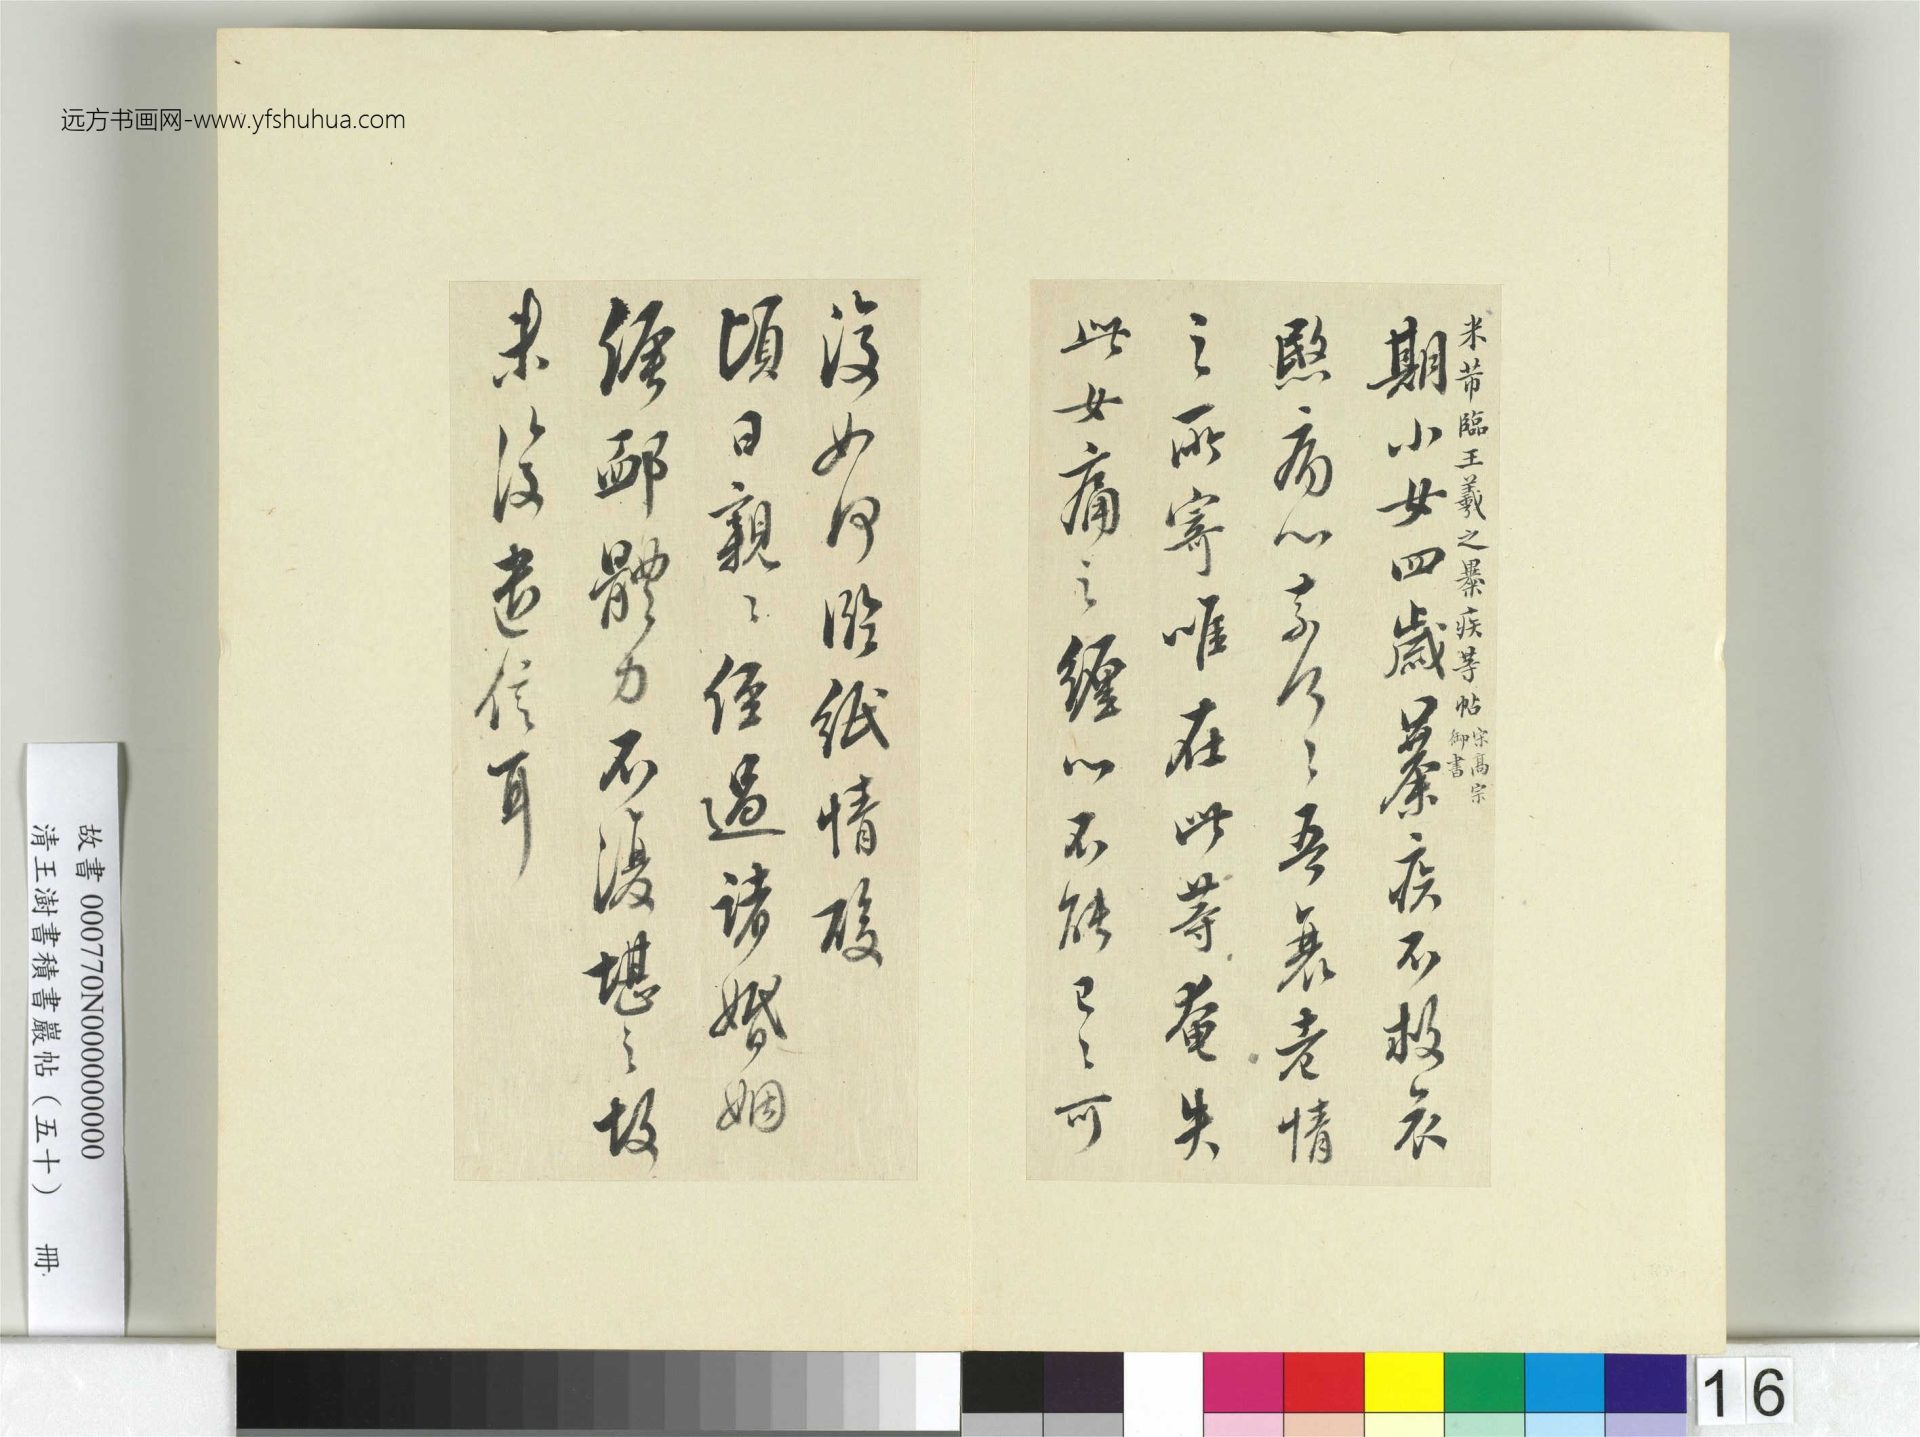 远方书画网-www.yfshuhua.com
米芾臨王羲之暴疾等帖宋高宗御書
期小女四歲暴疾不救哀
愍痛心奈何〻吾衰老情
之所寄唯在此等奄失
此女痛之纏心不能已〻可
復如何臨紙情酸
頃日親〻經過諸婚姻
經鄙體力不復堪之故
未復遣信耳
故書 000770N000000000
清王澍書積書巖帖（五十） 冊
16